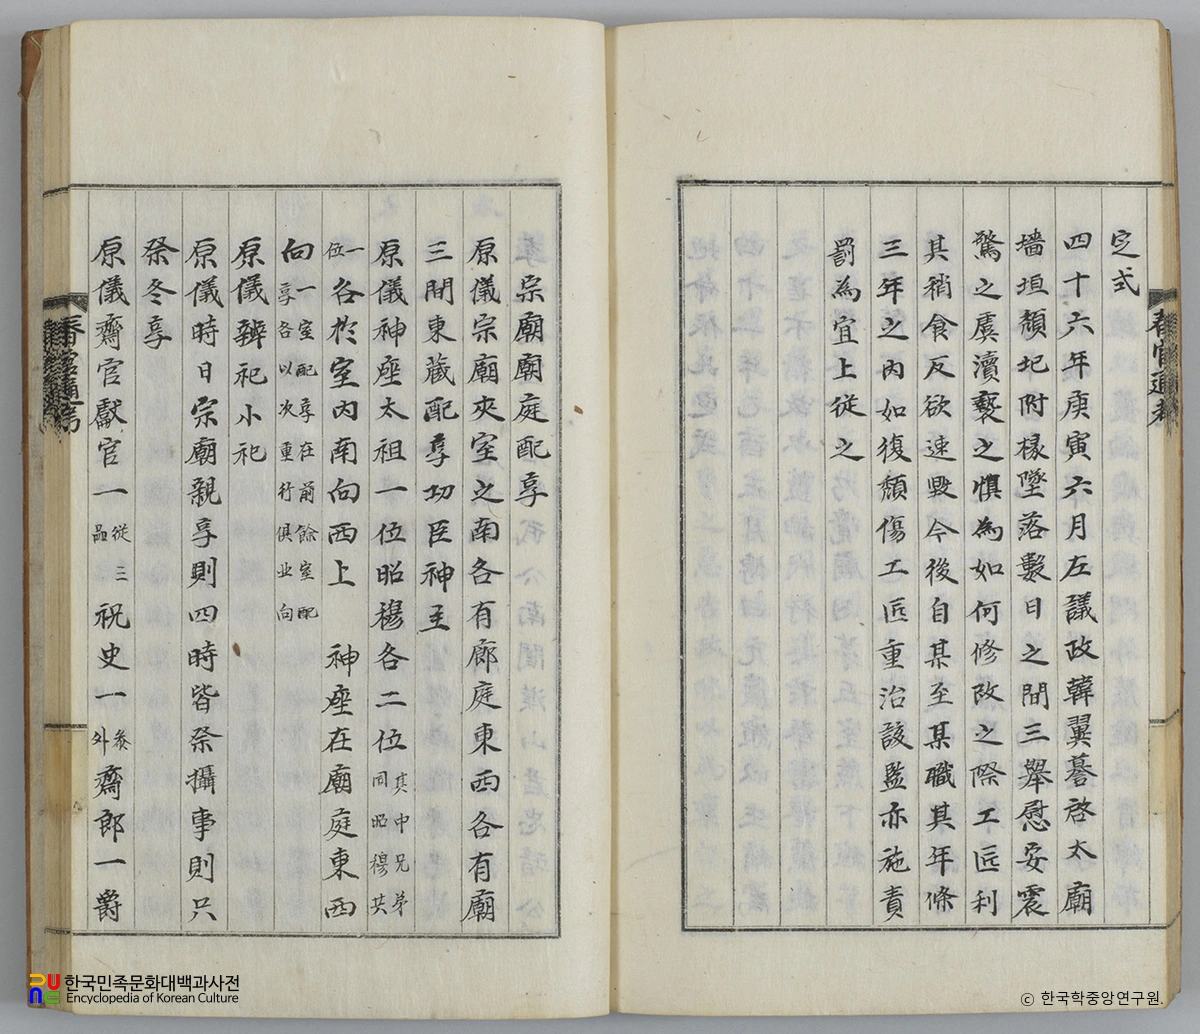 定式
四十六年庚寅六月左議政韓翼謩啓太廟
墻垣頹圮附椽墜落數日之間三舉慰安震
驚之虞瀆褻之懼為如何修改之際工匠利
其稍食反欲速毀今後自某至某職其年條
三年之內如復頹傷工匠重治該監亦施責
罰為宜上從之
春官通考
宗廟廟庭配享
原儀宗廟夾室之南各有廊庭東西各有廟
三間東藏配享功臣神主
原儀神座太祖一位昭穆各二位其中兄弟同昭穆共
一位各於室內南向西上 神座在廟庭東西
向一室配享在前餘室配享各以次重行俱北向
原儀辨祀小祀
原儀時日宗廟親享則四時皆祭攝事則只
祭冬享
原儀齋官獻官一從三品祝史一參外齋郎一爵
한국민족문화대백과사전
Encyclopedia of Korean Culture
ⓒ 한국학중앙연구원